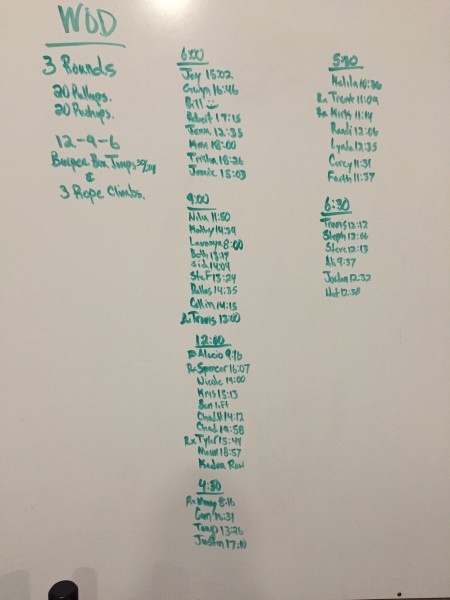 WOD
3 Rounds
20 Pullups.
20 Pushups.
12-9-6
Burpee Box Jumps 30/24
&
3 Rope Climbs.
6:00
Joy 15:02
16:46
Bill
Robert 17:15
Jenn 12:35
18:00
Trisha 18:26
Jamie 15:03
9:00
Nila 11:50
14:34
Lavonya 8:00
Beth 13:19
14:04
Stef 13:24
Dallas 14:35
Collin 14:15
Travis 12:00
12:00
Alecio 9:16
Rx Spencer 16:07
Nicole 19:00
Kris 15:13
Ben lift
Chad H 14:12
Chad 19:58
Rx Tyler 15:44
18:57
Row
4:30
Rx 8:16
Cam 16:31
13:26
Justin 17:10
5:30
Melila 10:36
Rx Trent 11:09
Rx Kirk 11:14
Randi 12:06
Lynde 12:35
Corey 11:31
Faith 11:37
6:30
Travis 12:12
Steph 12:06
Steve 12:13
Ali 9:37
Jordan 12:32
12:58